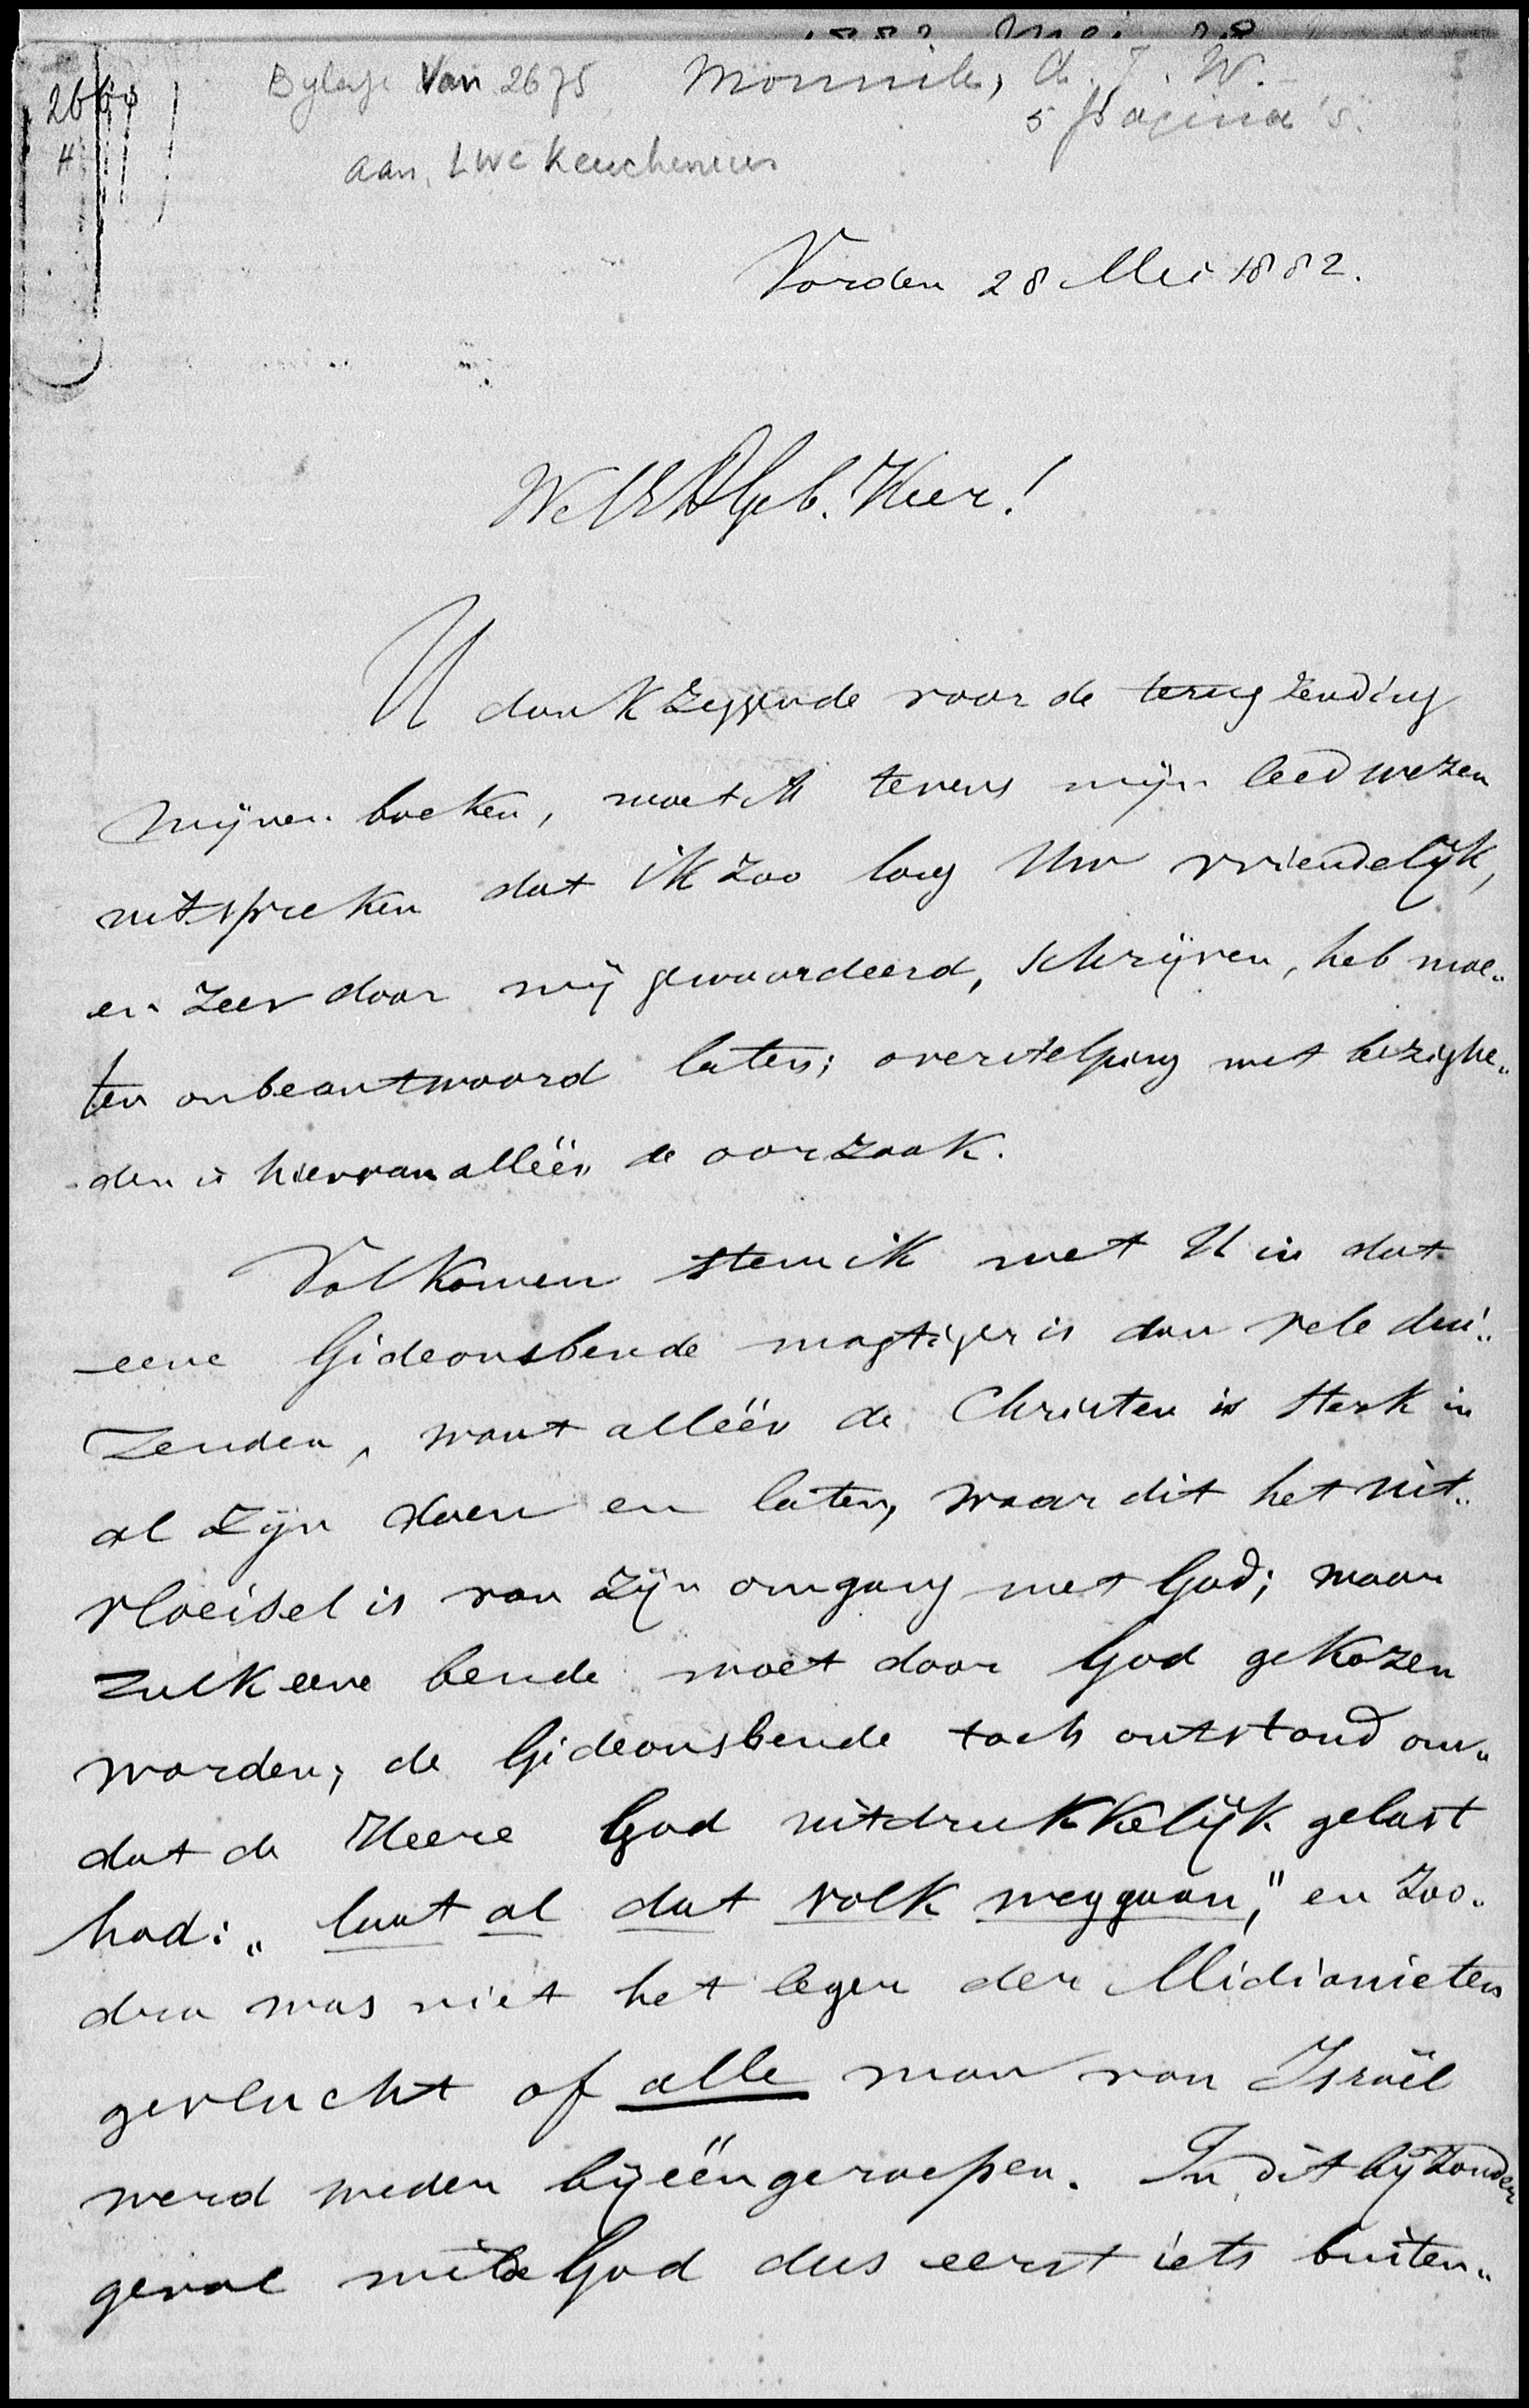 Bylage Van 2675 Monnik, Ch. J. W.
5 pagina's.
aan LWC Keuchenius
Vorden 28 Mei 1882.
WelEdGeb. Heer!
U dankzeggende voor de terugzending
mijner boeken, moet ik tevens mijn leedwezen
uitspreken dat ik zoo lang Uw vriendelijk,
en zeer door mij gewaardeerd, schrijven, heb moe„
ten onbeantwoord laten; overstelping met bezighe„
den is hiervan alléén de oorzaak.
Volkomen stem ik met U in dat
eene Gideonsbende magtiger is dan vele dui„
zenden, want alléén de Christen is sterk in
al zijn doen en laten, waar dit het uit„
vloeisel is van zijn omgang met God; maar
zulk eene bende moet door God gekozen
worden; de Gideonsbende toch ontstond om„
dat de Heere God uitdrukkelijk gelast
had: „laat al dat volk weggaan," en zoo„
dra was niet het leger der Midianieten
gevlucht of alle man van Israël
werd weder bijééngeroepen. In dit bijzonder
geval wilde God dus eerst iets buiten„